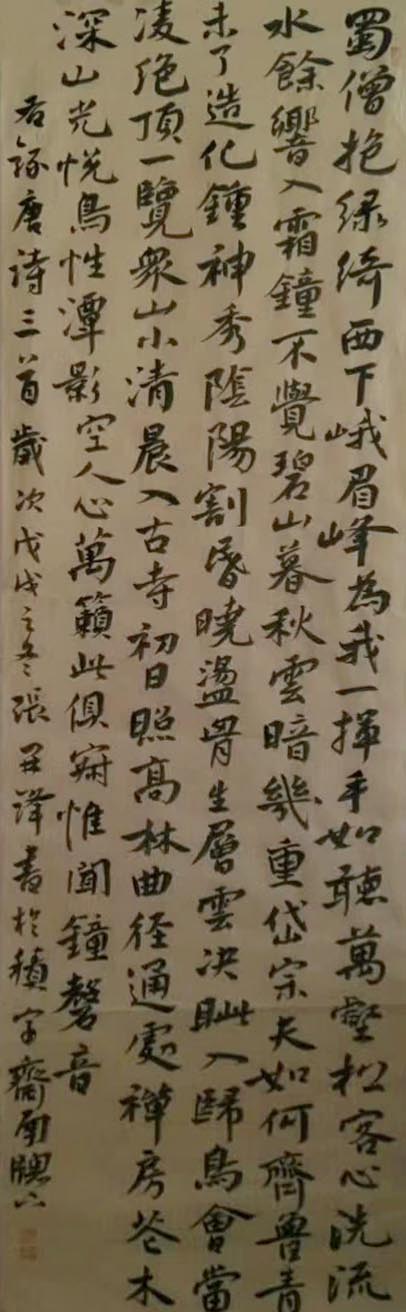 蜀僧抱綠綺西下峨眉峰為我一揮手如聽萬壑松客心洗流
水餘響入霜鐘不覺碧山暮秋雲暗幾重岱宗夫如何齊魯青
未了造化鍾神秀陰陽割昏曉盪胷生層雲决眦入歸鳥會當
凌絶頂一覽衆山小清晨入古寺初日照髙林曲径通處禪房花木
深山光悅鳥性潭影空人心萬籟此俱寂惟聞鐘磬音
右錄唐詩三首歲次戊戌之冬張書於積字齋南牕下